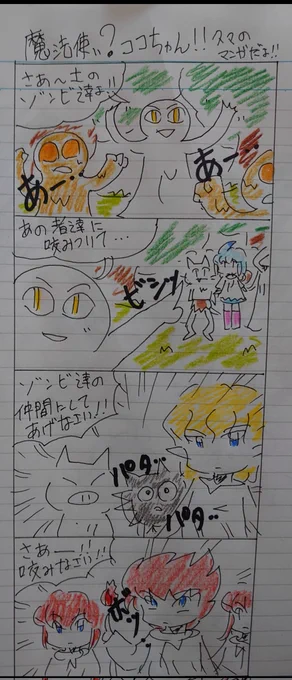 魔法使い?ココちゃん!!クマの
マンガだよ!!
さあ〜土の
ゾンビ達よ!!
あー…
あー…
あの者達に
咬みついて…
ビシッ
ゾンビ達の
仲間にして
あげなさい!!
パタ…
パタ…
さあー!!
咬みなさい!!
ボッ